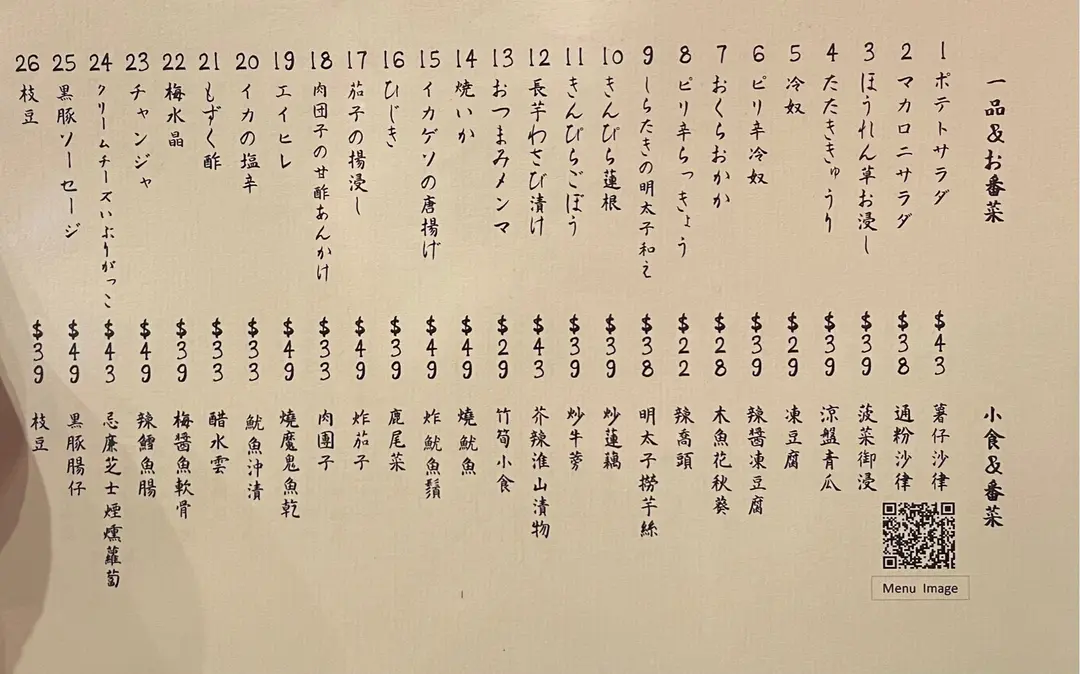 一品&お番菜
1 ポテトサラダ $43 薯仔沙律
2 マカロニサラダ $38 通粉沙律
3 ほうれん草お浸し $39 菠菜御浸
4 たたききゅうり $39 涼盤青瓜
5 冷奴 $29 凍豆腐
6 ピリ辛冷奴 $39 辣醬凍豆腐
7 おくらおかか $28 木魚花秋葵
8 ピリ辛らっきょう $22 辣喬頭
9 しらたきの明太子和え $38 明太子撈芋絲
10 きんぴら蓮根 $39 炒蓮藕
11 きんぴらごぼう $39 炒牛蒡
12 長芋わさび漬け $43 芥辣淮山漬物
13 おつまみメンマ $29 竹筍小食
14 焼いか $49 燒魷魚
15 イカゲソの唐揚げ $49 炸魷魚鬚
16 ひじき $39 鹿尾菜
17 茄子の揚浸し $49 炸茄子
18 肉団子の甘酢あんかけ $33 肉團子
19 エイヒレ $49 燒魔鬼魚乾
20 イカの塩辛 $33 魷魚沖漬
21 もずく酢 $33 醋水雲
22 梅水晶 $39 梅醬魚軟骨
23 チャンジャ $49 辣鱈魚腸
24 クリームチーズいぶりがっこ $43 忌廉芝士煙燻蘿蔔
25 黒豚ソーセージ $49 黒豚腸仔
26 枝豆 $39 枝豆
小食&番菜
Menu Image